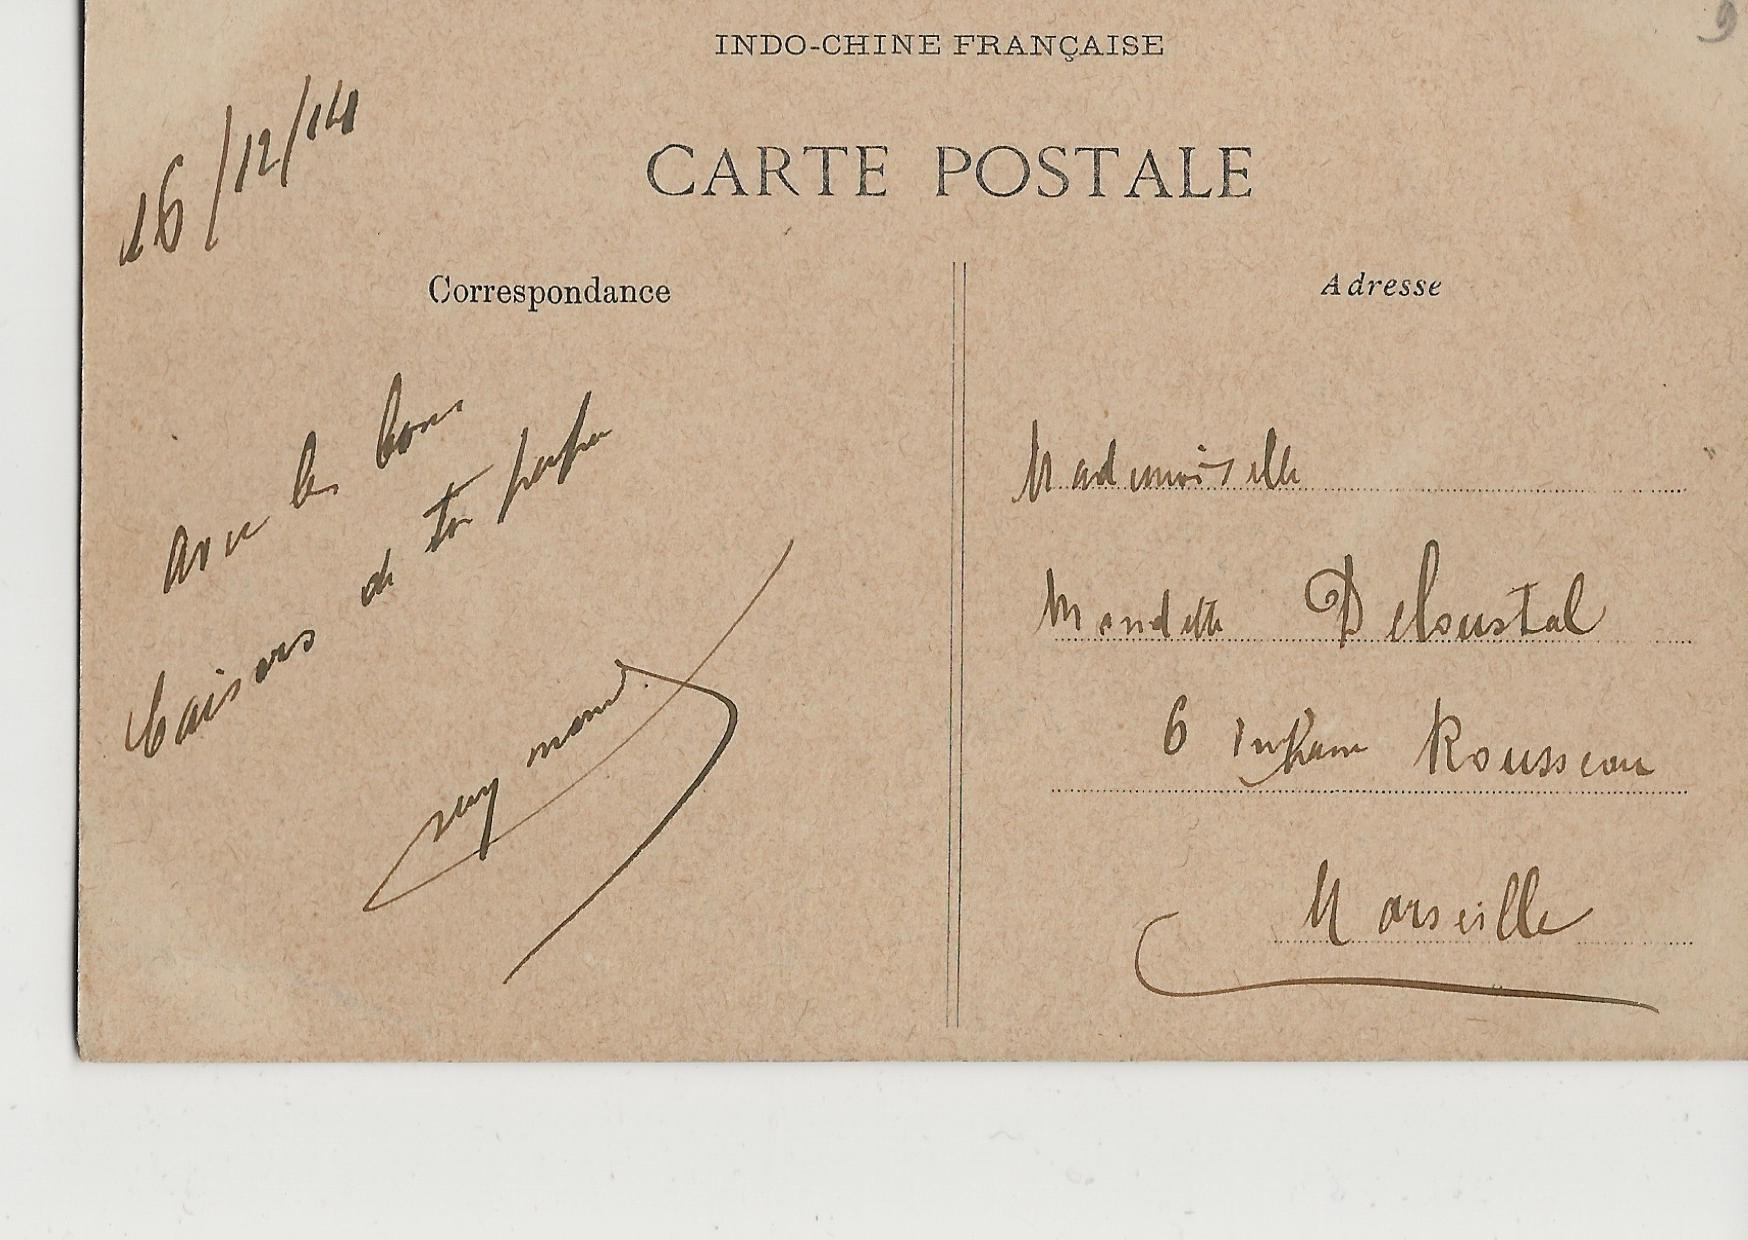 INDO-CHINE FRANÇAISE
9
CARTE POSTALE
16/12/14
Correspondance
avec les bons
baisers de ton papa
Raymond
Adresse
Mademoiselle
Mondette Deloustal
6 Rousseau
Marseille